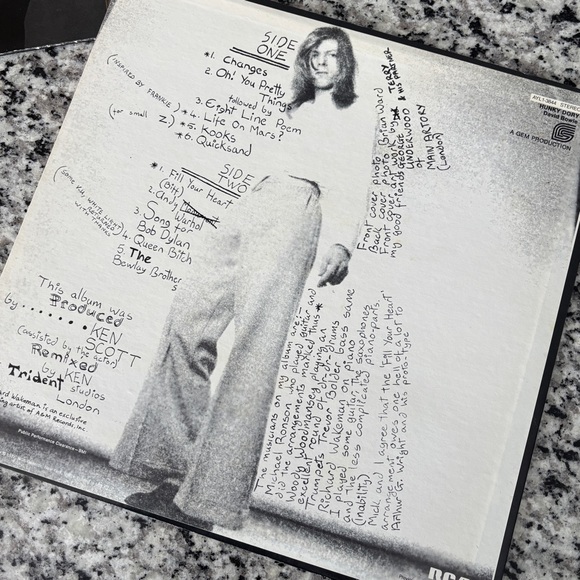 SIDE
ONE
*1. Changes
2. Oh! You Pretty
Things
followed by
3. Eight Line Poem
(INSPIRED BY FRANKIE) *4. Life On Mars?
(for small
Z) *5. Kooks
*6. Quicksand
SIDE
TWO
*1. Fill Your Heart
(Biff)
2. Andy
Warhol
3. Song for
Bob Dylan
(SOME V.U. WHITE LIGHT
RETURNED
WITH THANKS) 4. Queen Bitch
5 The
Bewlay Brothers
This album was
Produced
by ........ KEN
SCOTT
(assisted by the actor)
Remixed
by KEN
Trident studios
London
Wakeman is an exclusive
artist of A&M Records, Inc.
Front cover photo Brian Ward
Back cover photo Brian Ward
Front cover art work by TERRY
& HIS PARTNER
my good friends GEORGE
UNDERWOOD
of
MAIN ARTORY
(London)
The musicians on my album are:-
Michael Ronson who played guitar and
did the arrangements marked thus *
Woody Woodmansey playing an
excellent round of drums
Trumpets Trevor Bolder bass same
Richard Wakeman on piano
I played some guitar, the saxophones
and the less complicated piano-parts
(inability)
Mick and I agree that the 'Fill Your Heart'
arrangement owes one hell of a lot to
Arthur G. Wright and his proto-type
AYL1-3844 STEREO
HUNKY DORY
David Bowie
G
A GEM PRODUCTION
RCA